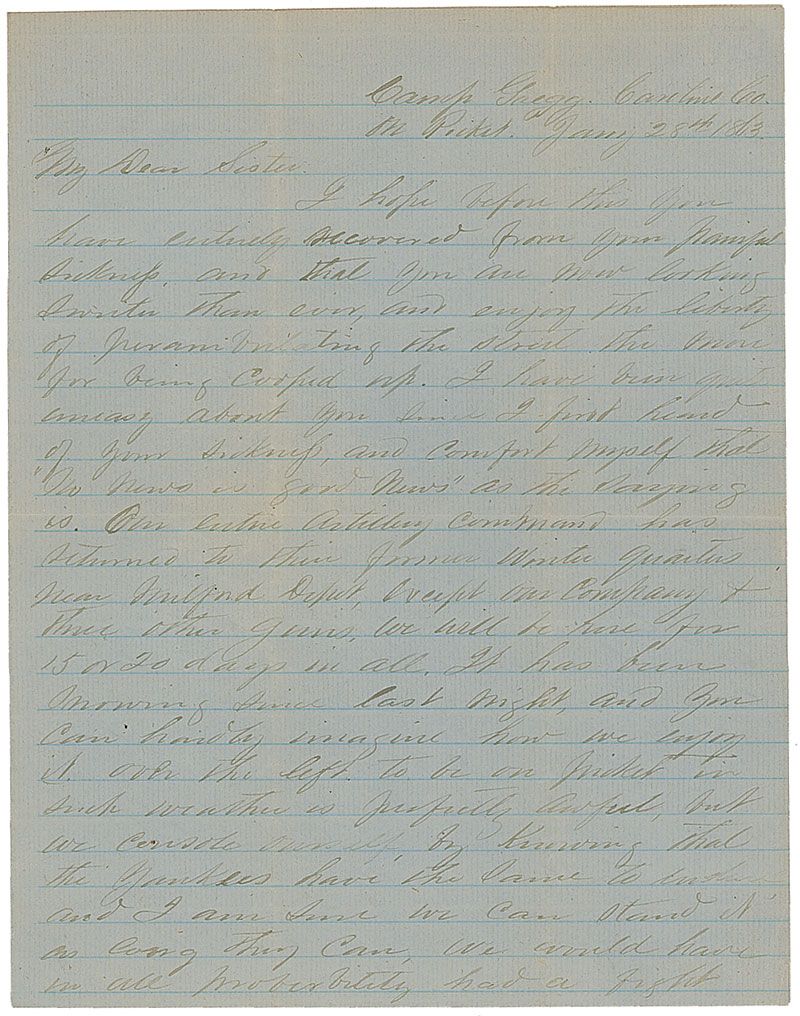 Camp Gregg. Caroline Co.
On Picket. Jany 28th 1863.
My Dear Sister.
I hope before this you
have entirely recovered from your painful
sickness, and that you are now looking
sweeter than ever, and enjoy the liberty
of perambulating the street the more
for being cooped up. I have been quite
uneasy about you since I first heard
of your sickness, and comfort myself that
"No News is good News" as the saying
is. Our entire Artillery Command has
returned to their former Winter Quarters
near Milford Depot, except our Company &
three other Guns, we will be here for
15 or 20 days in all. It has been
snowing since last night, and you
can hardly imagine how we enjoy
it over the left. to be on picket in
such weather is perfectly awful, but
we console ourself, by knowing that
the Yankees have the same to endure
and I am sure we can stand it
as long they can, we would have
in all proberbility had a fight